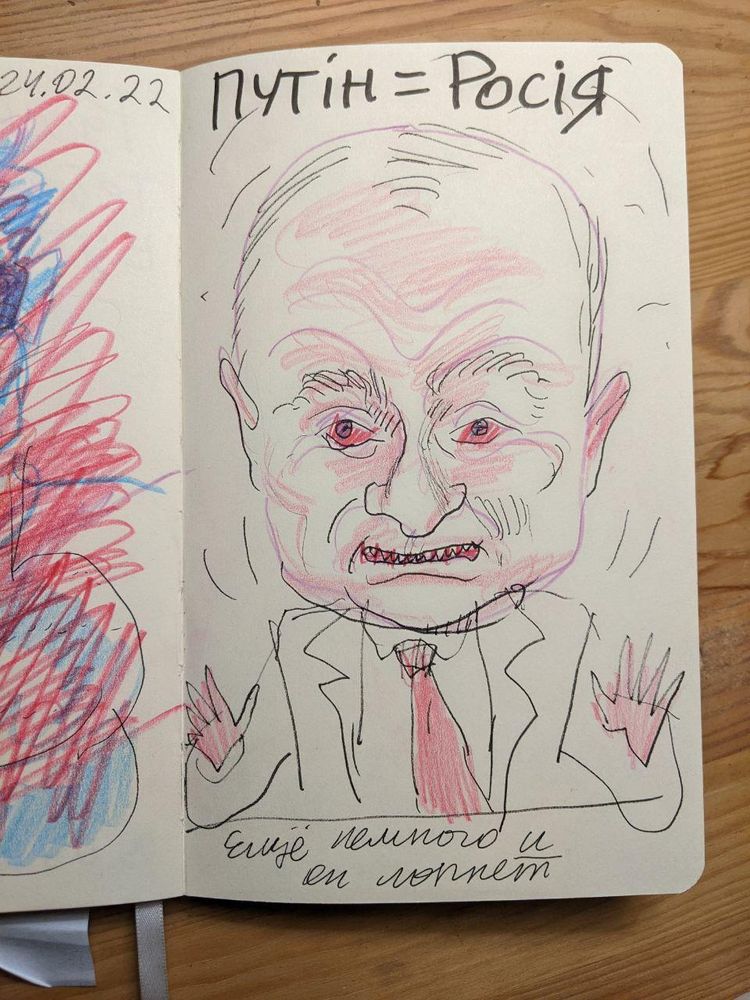 24.02.22
ПУТІН = Росія
ещё немного и
он лопнет